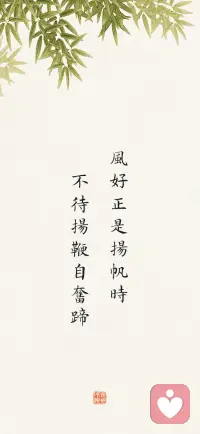 風好正是揚帆時
不待揚鞭自奮蹄